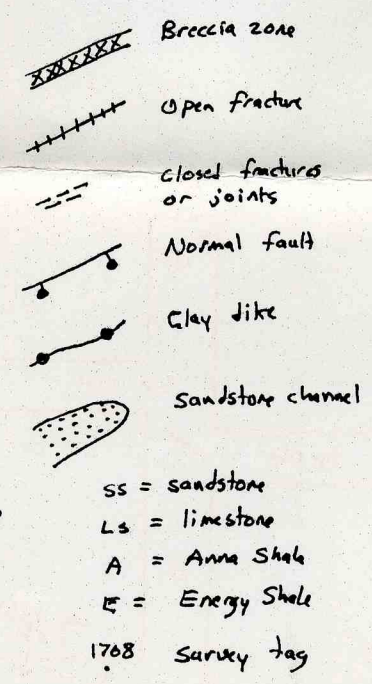 Breccia zone
Open fracture
closed fractures
or joints
Normal fault
Clay dike
Sandstone channel
SS = sandstone
Ls = limestone
A = Anna Shale
E = Energy Shale
1768 Survey tag